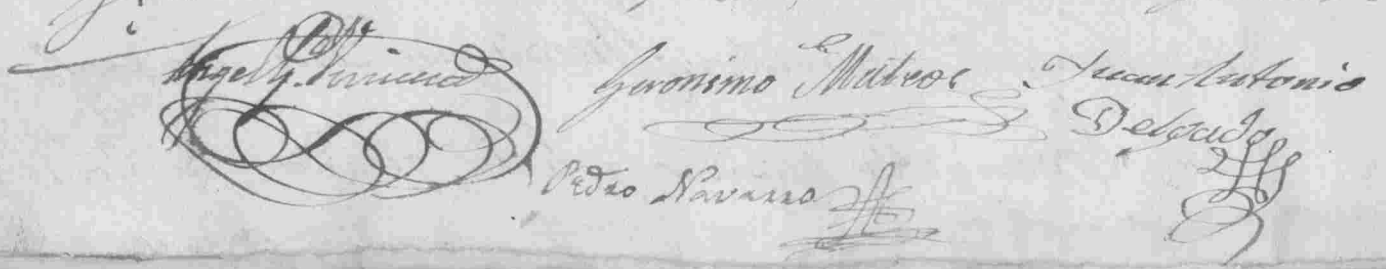 Angel G.
Geronimo Mateos
Juan Antonio
Delgado
Pedro Navarro